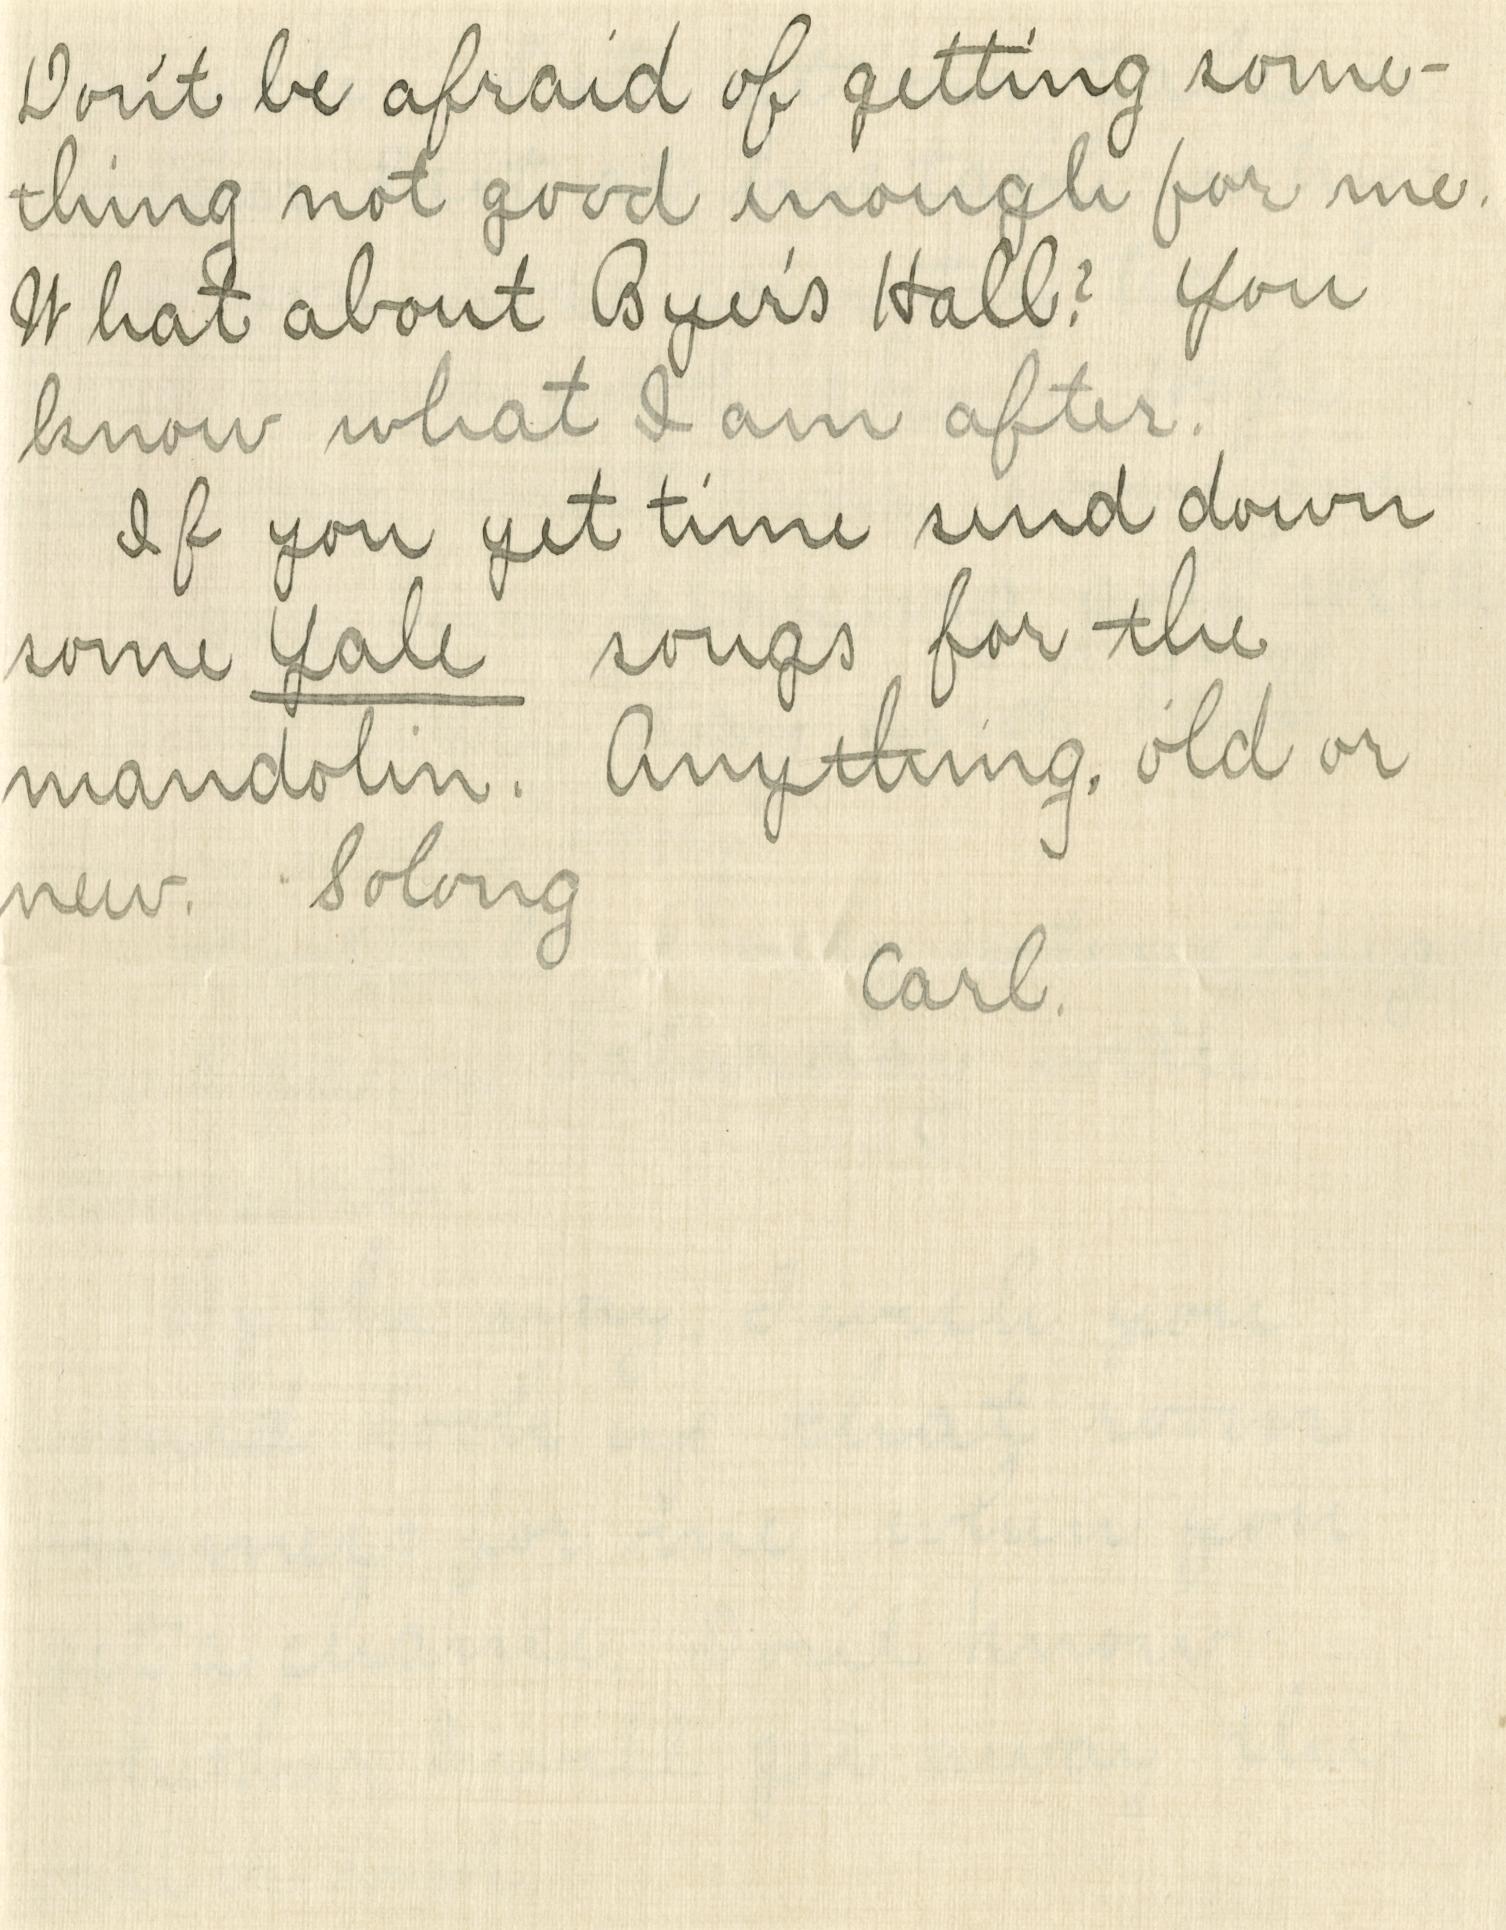 Don't be afraid of getting some-
thing not good enough for me.
What about Byer's Hall? You
know what I am after.
If you get time send down
some Yale songs for the
mandolin. Anything, old or
new. Solong
Carl.